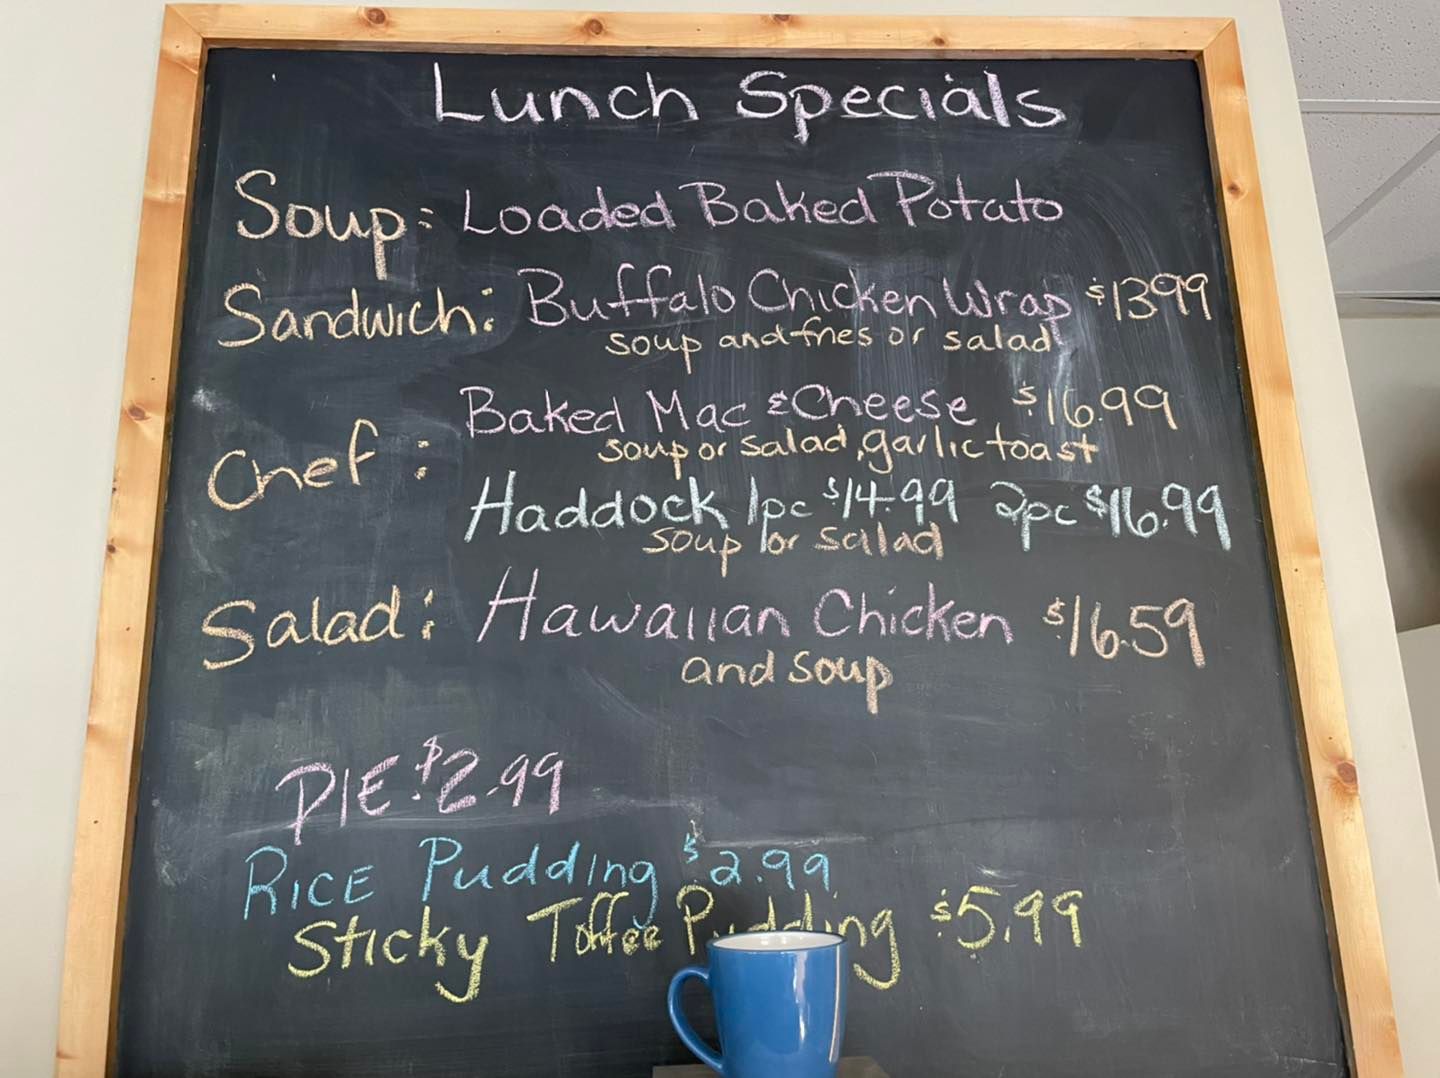 Lunch Specials
Soup: Loaded Baked Potato
Sandwich: Buffalo Chicken Wrap $13.99
soup and fries or salad
Chef: Baked Mac & Cheese $16.99
soup or salad, garlic toast
Haddock 1pc $14.99 2pc $16.99
soup or salad
Salad: Hawaiian Chicken $16.59
and soup
PIE $2.99
RICE Pudding $2.99
Sticky Toffee Pudding $5.99